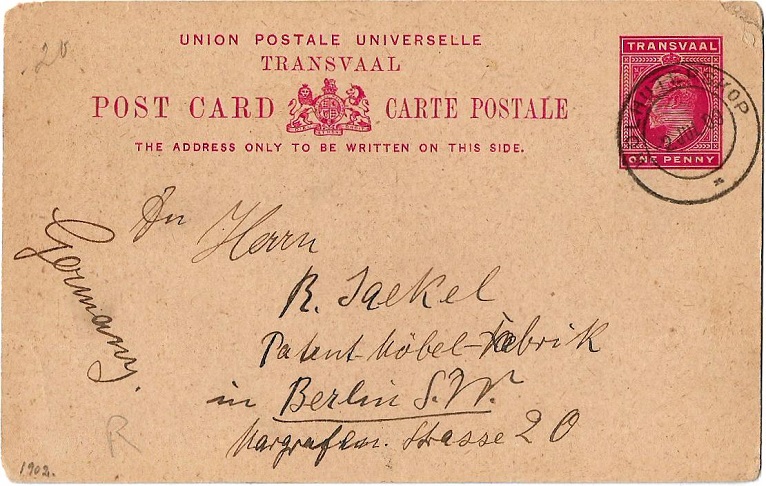 20
UNION POSTALE UNIVERSELLE
TRANSVAAL
POST CARD CARTE POSTALE
THE ADDRESS ONLY TO BE WRITTEN ON THIS SIDE.
TRANSVAAL
ONE PENNY
An Herrn
R. Jaekel
Patent-Möbel-Fabrik
in Berlin S.W.
Margrafen. Strasse 20
Germany.
R
1902.